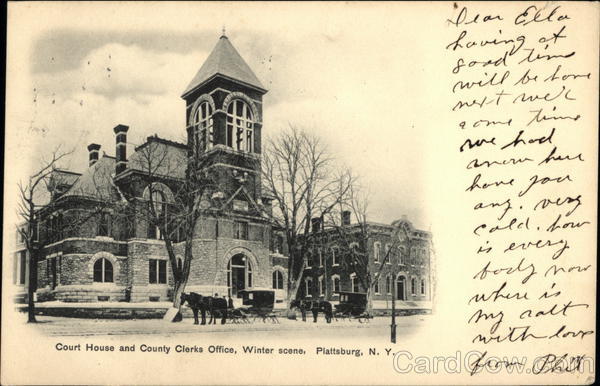 Dear Ella
having at
good time
will be home
next wek
some time
we had
snow here
have you
any. very
cold. how
is every
body now
where is
my
with love
from
Court House and County Clerks Office, Winter scene, Plattsburg, N. Y.
CardCow.com